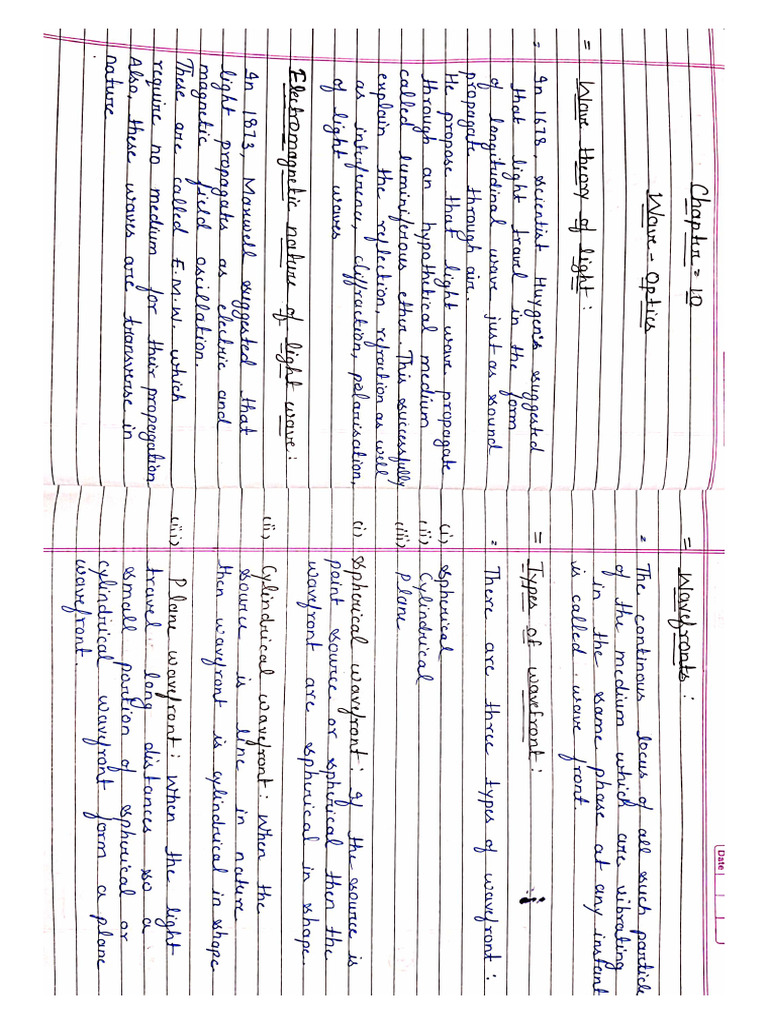 Chapter = 10
Wave - Optics
= Wave theory of light :
= In 1678, scientist Huygen's suggested
that light travel in the form
of longitudinal wave just as sound
propagate through air.
He propose that light wave propagate
through an hypothitical medium
called luminiferous ether. This successfully
explain the reflection, refraction as well
as interference, diffraction, polarisation,
of light waves
Electromagnetic nature of light wave :
In 1873, Maxwell suggested that
light propagates as electric and
magnetic field oscillation.
These are called E.M.W. which
require no medium for their propagation
Also, these waves are transverse in
nature
Date
= Wavefronts :
= The continous locus of all such particle
of the medium which are vibrating
in the same phase at any instant
is called wave front.
= Types of wavefront :
= There are three types of wavefront :
(i) spherical
(ii) Cylindrical
(iii) Plane
(i) spherical wavefront : If the source is
point source or spherical then the
wavefront are spherical in shape.
(ii) Cylindrical wavefront : When the
source is line in nature
then wavefront is cylindrical in shape
(iii) Plane wavefront : When the light
travel long distances so a
small portion of spherical or
cylindrical wavefront form a plane
wavefront.